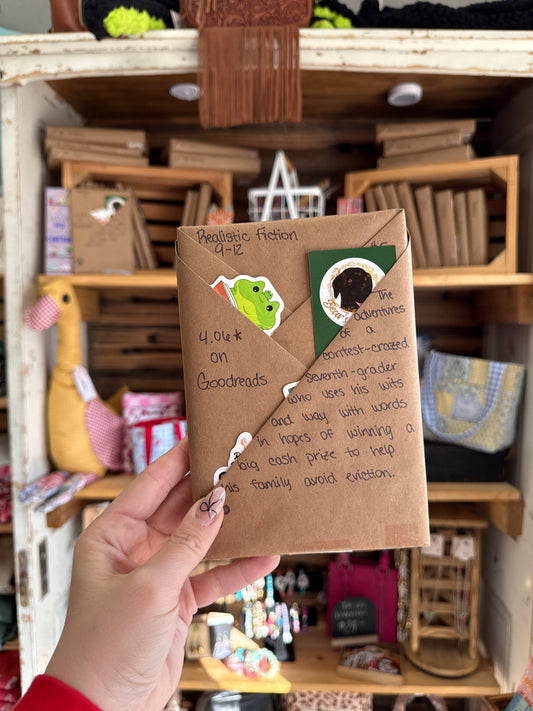 Realistic Fiction
9-12
4.06*
on
Goodreads
The
adventures
of a
contest-crazed
seventh-grader
who uses his wits
and way with words
in hopes of winning a
big cash prize to help
his family avoid eviction.